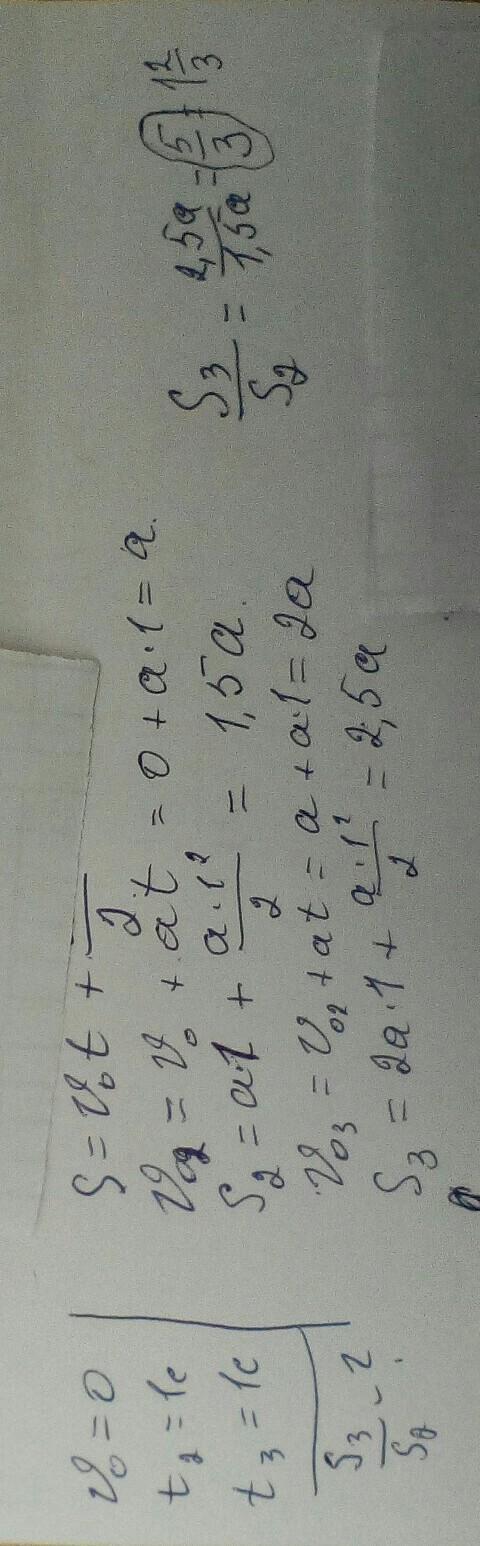 v₀ = 0
t₂ = 1c
t₃ = 1c
S₃/S₂ - ?
S = v₀t + —/2
v₀₂ = v₀ + at = 0 + a·1 = a.
S₂ = a·1 + a·1²/2 = 1,5a.
v₀₃ = v₀₂ + at = a + a·1 = 2a
S₃ = 2a·1 + a·1²/2 = 2,5a
S₃/S₂ = 2,5a/1,5a = 5/3 = 1 2/3